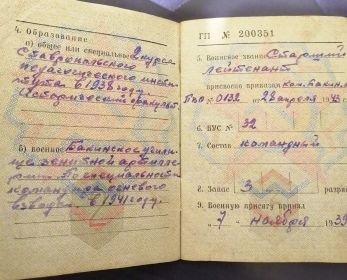 4. Образование
а) общее или специальное 2 курса
Ставропольского
педагогического инсти-
тута в 1938 году.
Исторический факульт.
б) военное Бакинское учили-
ще зенитной артилле-
рии. По специальности
командира огневого
взвода в 1941 году.
ГП № 200351
5. Воинское звание Старший
лейтенант
присвоено приказом
№ 0132 22 апреля 1943
6. ВУС № 32
7. Состав командный
8. Запас 3 разряд
9. Военную присягу принял
„7 ноября 1939